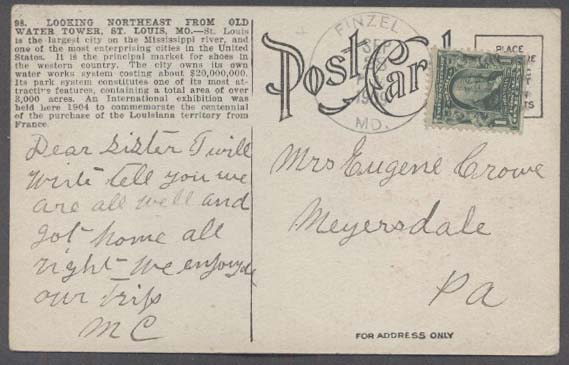 98. LOOKING NORTHEAST FROM OLD
WATER TOWER, ST. LOUIS, MO.—St. Louis
is the largest city on the Mississippi river, and
one of the most enterprising cities in the United
States. It is the principal market for shoes in
the western country. The city owns its own
water works system costing about $20,000,000.
Its park system constitutes one of its most at-
tractive features, containing a total area of over
3,000 acres. An International exhibition was
held here 1904 to commemorate the centennial
of the purchase of the Louisiana territory from
France.
Dear Sister I will
write tell you we
are all well and
got home all
right we enjoyde
our trip
M C
Post Card
FINZEL
SEP
MD.
PLACE
Mrs Eugene Crowe
Meyersdale
Pa
FOR ADDRESS ONLY